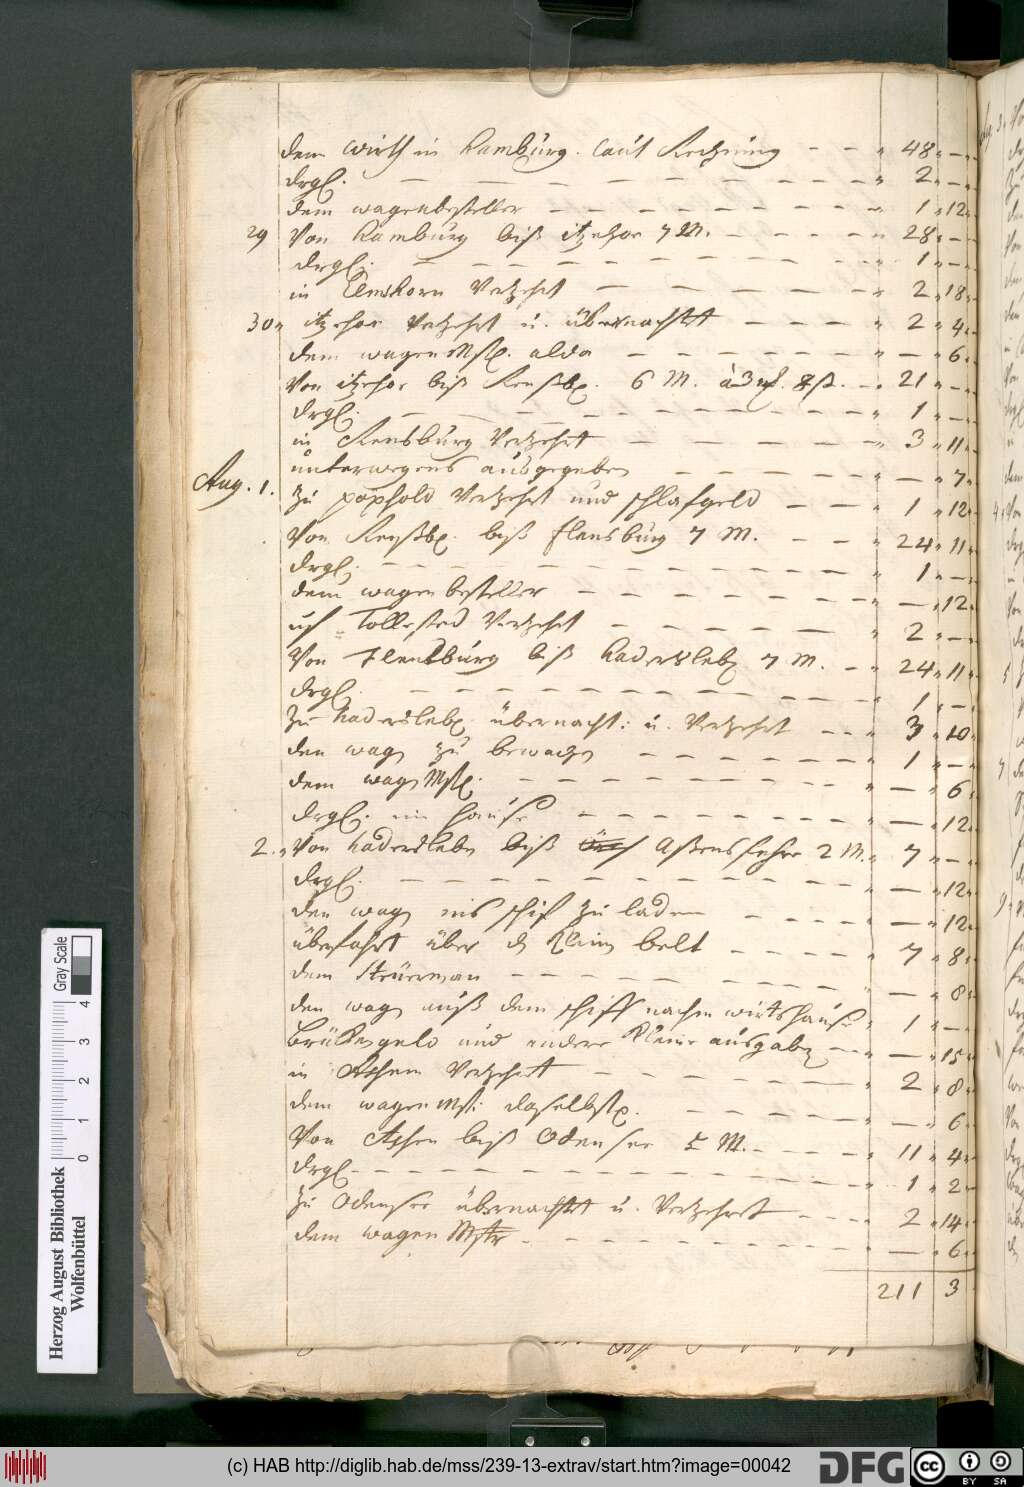 dem Wirth in Hamburg. laut Rechnung - - " 48 " — "
drgl. — — " 2 " — "
dem wagenbesteller — — " 1 " 12 "
29 Von Hamburg biß itzehoe 7 M. — " 28 " — "
drgl. — — " 1 " — "
in Elmshorn Verzehrt — " 2 " 18 "
30 " itzehoe Verzehrt u. übernachtet — " 2 " 4 "
dem wagenMstr. alda — " — " 6 "
Von itzehoe biß Rensbg. 6 M. à 3 8 ß. — " 21 " — "
drgl. — — " 1 " — "
in Rensburg Verzehrt — " 3 " 11 "
unterwegens ausgegeben — " — " 7 "
Aug. 1. Zu pophold Verzehrt und schlafgeld — " 1 " 12 "
Von Rensbg. biß Flensburg 7 M. — " 24 " 11 "
drgl. — — " 1 " — "
dem wagenbesteller — " — " 12 "
Tollested Verzehrt — " 2 " — "
Von Flensburg biß Haderslebn 7 M. — " 24 " 11 "
drgl. — — " 1 " — "
Zu Haderslebn übernacht: u. Verzehrt — " 3 " 10 "
den wagn zu bewachn — " 1 " — "
dem wagnMstr. — " — " 6 "
drgl. im Hause — " — " 12 "
2. " Von Haderslebn biß Aßensfehre 2 M. " 7 " — "
drgl. — — " — " 12 "
den wagn ins schif zu laden — " — " 12 "
überfahrt über dn kleinn belt — " 7 " 8 "
dem Steuerman — " — " 8 "
den wagn auß dem schiff nachm wirtshause " 1 " — "
Brückengeld und andere kleine ausgabn — " — " 15 "
in Assens Verzehrt — " 2 " 8 "
dem wagenMst: daselbst. — " — " 6 "
Von Assens biß Odensee 5 M. — " 11 " 4 "
drgl. — — " 1 " 2 "
Zu Odensee übernachtet u. Verzehret — " 2 " 14 "
dem wagen Mstr — " — " 6 "
211 3
Herzog August Bibliothek
Wolfenbüttel
0 1 2 3 4
Gray Scale
(c) HAB http://diglib.hab.de/mss/239-13-extrav/start.htm?image=00042
DFG
cc BY SA